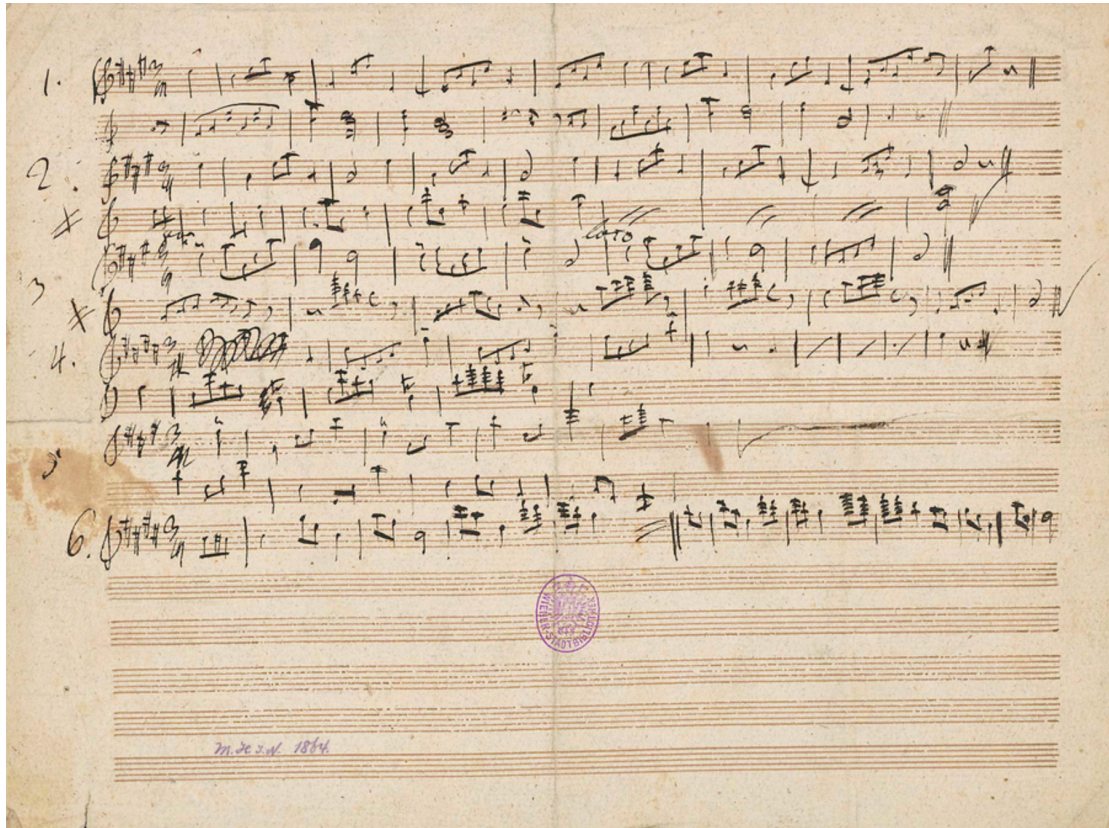 1.
2.
loco
3
4.
5
6.
WIENER STADTBIBLIOTHEK
M.H.I.N. 1864.